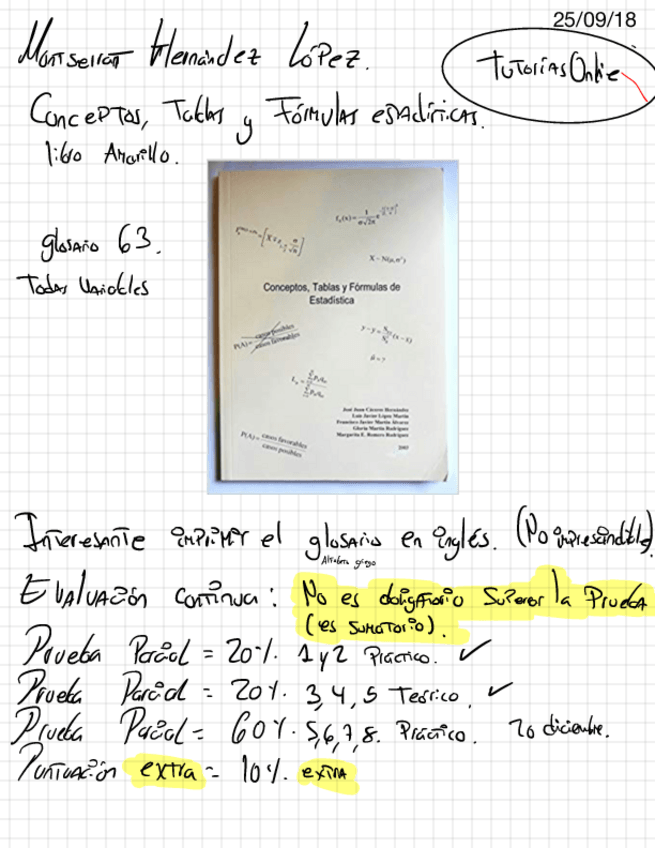 25/09/18
Montserrat Hernández López.
Tutorías Online
Conceptos, Tablas y Fórmulas estadísticas.
libro Amarillo.
glosario 63.
Todas Variables
X ~ N(μ,σ²)
Conceptos, Tablas y Fórmulas de
Estadística
P(A)= casos posibles / casos favorables
José Juan Cáceres Hernández
Luis Javier López Martín
Francisco Javier Martín Álvarez
Gloria Martín Rodríguez
Margarita E. Romero Rodríguez
2007
P(A)= casos favorables / casos posibles
Interesante imprimir el glosario en inglés. (No imprescindible)
Alfabeto griego
Evaluación continua: No es obligatorio superar la Prueba
(es sumatorio).
Prueba Parcial = 20%. 1 y 2 Práctico. ✓
Prueba Parcial = 20%. 3, 4, 5 Teórico. ✓
Prueba Parcial = 60%. 5, 6, 7, 8. Práctico. 20 diciembre.
Puntuación extra = 10%. extra